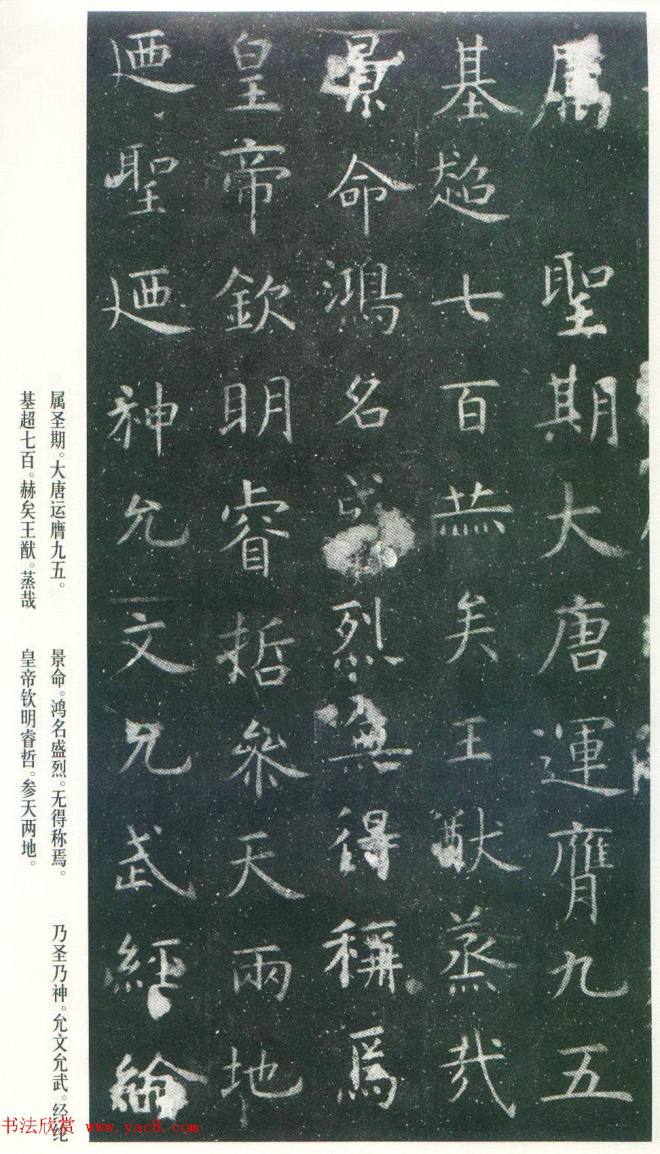 属 聖期大唐運膺九五
基超七百赫矣王猷蒸哉
景命鴻名盛烈無得稱焉
皇帝欽明睿哲參天兩地
迺聖迺神允文允武經綸
属圣期。大唐运膺九五。
基超七百。赫矣王猷。蒸哉
景命。鸿名盛烈。无得称焉。
皇帝钦明睿哲。参天两地。
乃圣乃神。允文允武。经纶
书法欣赏 www.yac8.com